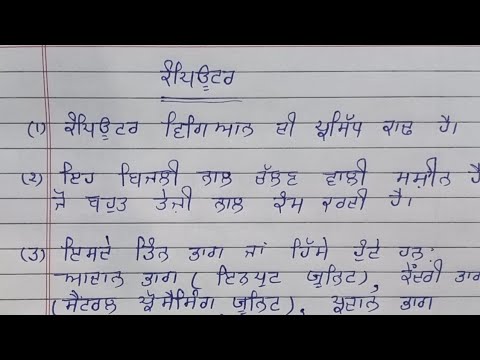 ਕੰਪਿਊਟਰ
(1) ਕੰਪਿਊਟਰ ਵਿਗਿਆਨ ਦੀ ਪ੍ਰਸਿੱਧ ਕਾਢ ਹੈ।
(੨) ਇਹ ਬਿਜਲੀ ਨਾਲ ਚੱਲਣ ਵਾਲੀ ਮਸ਼ੀਨ ਹੈ
ਜੋ ਬਹੁਤ ਤੇਜ਼ੀ ਨਾਲ ਕੰਮ ਕਰਦੀ ਹੈ।
(੩) ਇਸਦੇ ਤਿੰਨ ਭਾਗ ਜਾਂ ਹਿੱਸੇ ਹੁੰਦੇ ਹਨ:
ਆਦਾਨ ਭਾਗ (ਇਨਪੁਟ ਯੂਨਿਟ), ਕੇਂਦਰੀ ਭਾਗ
(ਸੈਂਟਰਲ ਪ੍ਰੋਸੈਸਿੰਗ ਯੂਨਿਟ), ਪ੍ਰਦਾਨ ਭਾਗ